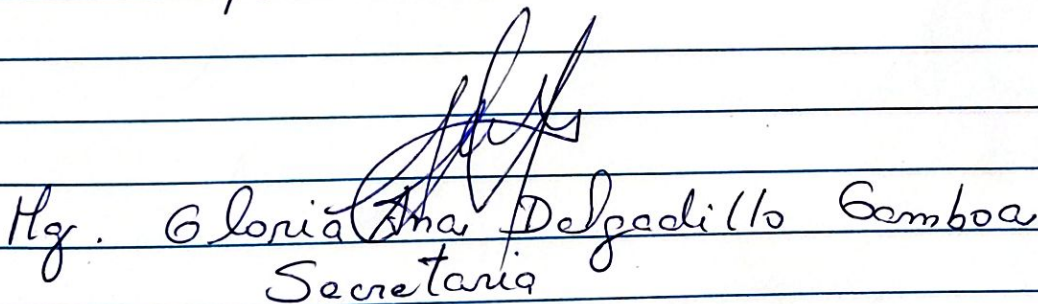 Mg. Gloria Ana Delgadillo Gamboa
Secretaria